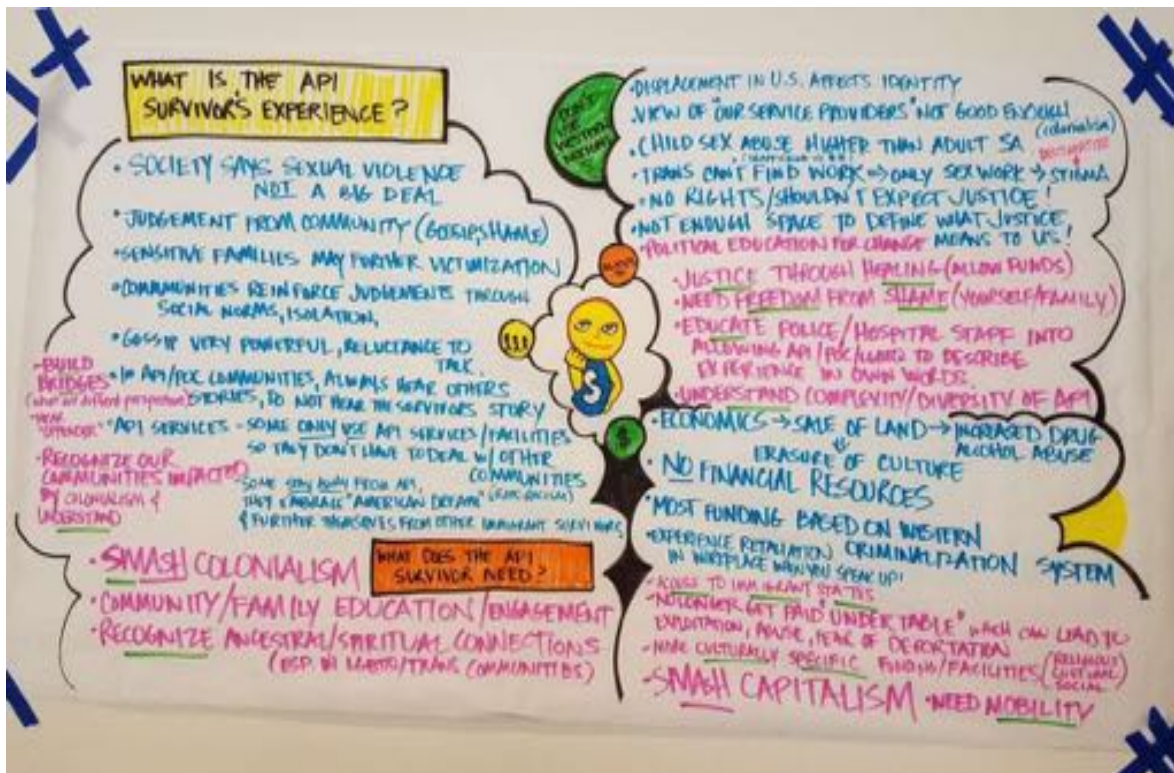 WHAT IS THE API
SURVIVOR'S EXPERIENCE?
• SOCIETY SAYS SEXUAL VIOLENCE
NOT A BIG DEAL
• JUDGEMENT FROM COMMUNITY (GOSSIP, SHAME)
• SENSITIVE FAMILIES MAY FURTHER VICTIMIZATION
• COMMUNITIES REINFORCE JUDGEMENTS THROUGH
SOCIAL NORMS, ISOLATION,
• GOSSIP VERY POWERFUL, RELUCTANCE TO
TALK.
• IN API/POC COMMUNITIES, ALWAYS HEAR OTHERS
STORIES, DO NOT HEAR THE SURVIVORS STORY
• API SERVICES - SOME ONLY USE API SERVICES/FACILITIES
SO THEY DON'T HAVE TO DEAL W/ OTHER
COMMUNITIES
SOME STAY AWAY FROM API,
THEY EMBRACE "AMERICAN DREAM"
& FURTHER THEMSELVES FROM OTHER IMMIGRANT SURVIVORS
- BUILD
BRIDGES
"OFFENDER"
• RECOGNIZE OUR
COMMUNITIES IMPACTED
BY COLONIALISM &
UNDERSTAND
WHAT DOES THE API
SURVIVOR NEED?
• SMASH COLONIALISM
• COMMUNITY/FAMILY EDUCATION/ENGAGEMENT
• RECOGNIZE ANCESTRAL/SPIRITUAL CONNECTIONS
(ESP. IN LGBTQ/TRANS COMMUNITIES)
• DISPLACEMENT IN U.S. AFFECTS IDENTITY
• VIEW OF "OUR SERVICE PROVIDERS" NOT GOOD ENOUGH
(colonialism)
• CHILD SEX ABUSE HIGHER THAN ADULT SA
• TRANS CAN'T FIND WORK ⇒ ONLY SEX WORK → STIGMA
• NO RIGHTS/SHOULDN'T EXPECT JUSTICE!
• NOT ENOUGH SPACE TO DEFINE WHAT JUSTICE
MEANS TO US!
• POLITICAL EDUCATION FOR CHANGE
• JUSTICE THROUGH HEALING (ALLOW FUNDS)
• NEED FREEDOM FROM SHAME (YOURSELF/FAMILY)
• EDUCATE POLICE/HOSPITAL STAFF INTO
ALLOWING API/POC/LGBTQ TO DESCRIBE
EXPERIENCE IN OWN WORDS.
• UNDERSTAND COMPLEXITY/DIVERSITY OF API
$
S
• ECONOMICS → SALE OF LAND → INCREASED DRUG
ALCOHOL ABUSE
ERASURE OF CULTURE
• NO FINANCIAL RESOURCES
• MOST FUNDING BASED ON WESTERN
CRIMINALIZATION SYSTEM
• EXPERIENCE RETALIATION
IN WORKPLACE WHEN YOU SPEAK UP!
• ACCESS TO IMMIGRANT STATES
• NO LONGER GET PAID "UNDER TABLE" WHICH CAN LEAD TO
EXPLOITATION, ABUSE, FEAR OF DEPORTATION
• MORE CULTURALLY SPECIFIC FUNDING/FACILITIES (RELIGIOUS
CULTURAL
SOCIAL
• SMASH CAPITALISM
• NEED MOBILITY